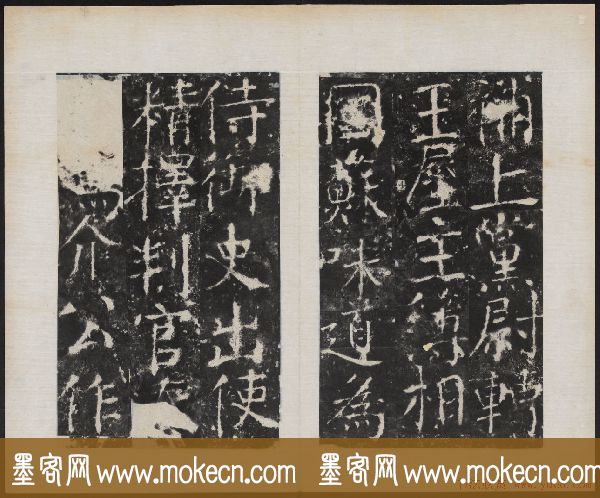 補上黨尉轉
王屋主簿相
國蘇味道為
侍御史出使
精擇判官
介公作
墨客网 www.mokecn.com
墨客网 www.mokecn.com